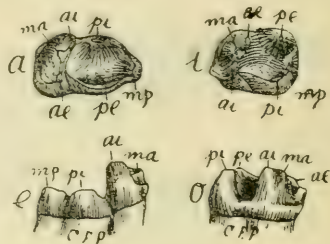 ma ai pi
a
ae pe mp
ma ae pe
i
ai pi mp
ai ma
mp pi
e
C.F.P.
pi pe ai ma
ae
O
C.F.P.